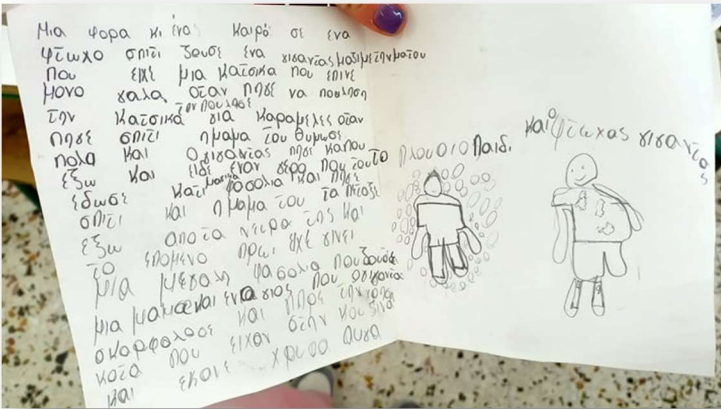 Μια φορα κι ένας καιρό σε ενα
φτωχο σπιτι ζουσε ενα γιγαντας μαζι με την μα του
που εχε μια κατσικα που επινε
μονο γαλα οταν πηγε να πουληση
την κατσικα την πουλησε για καραμελες οταν
πηγε σπιτι η μαμα του θυμωσε
πολα και Ο γιγαντας πηγε καπου
εξω και ειδε εναν γερο που του το
εδωσε κατι μαγικα φασολια και πηγε
σπιτι και η μαμα του τα πεταξε
εξω απο τα νευρα της και
το επομενο πρωι εχε γινει
μια μεγαλη φασολια που ζουσε
μια μαμα και ενα γιος που ο γιγαντας
σκαρφαλοσε και πηρε την χρησή
κοτα που ειχαν στην κουζινα
και εκανε χρυσα αυγα
πλουσιο παιδι
και ο φτωχος γιγαντας